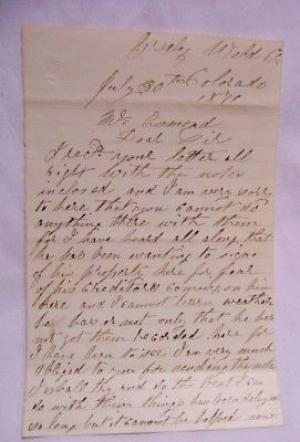 Greeley Weld Co
July 30th Colorado
1871
Mr. Osmond
Dear Sir
I recd. your letter all
right with the notes
inclosed and I am very sorry
to here that you cannot do
anything there with them
for I have heard all along that
he has been wanting to
of his property here for fear
of his Creditors coming on him
here and I cannot learn weather
he has or not only that he has
not got them recorded here for
I have been to see I am very much
oblied to you for sending the note
I shall try and do the best I can
do with them things has been delayed
so long but it cannot be helped now